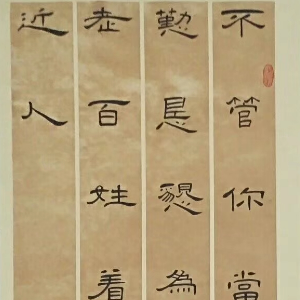 不管你當
懃恳懇為
老百姓着
近人